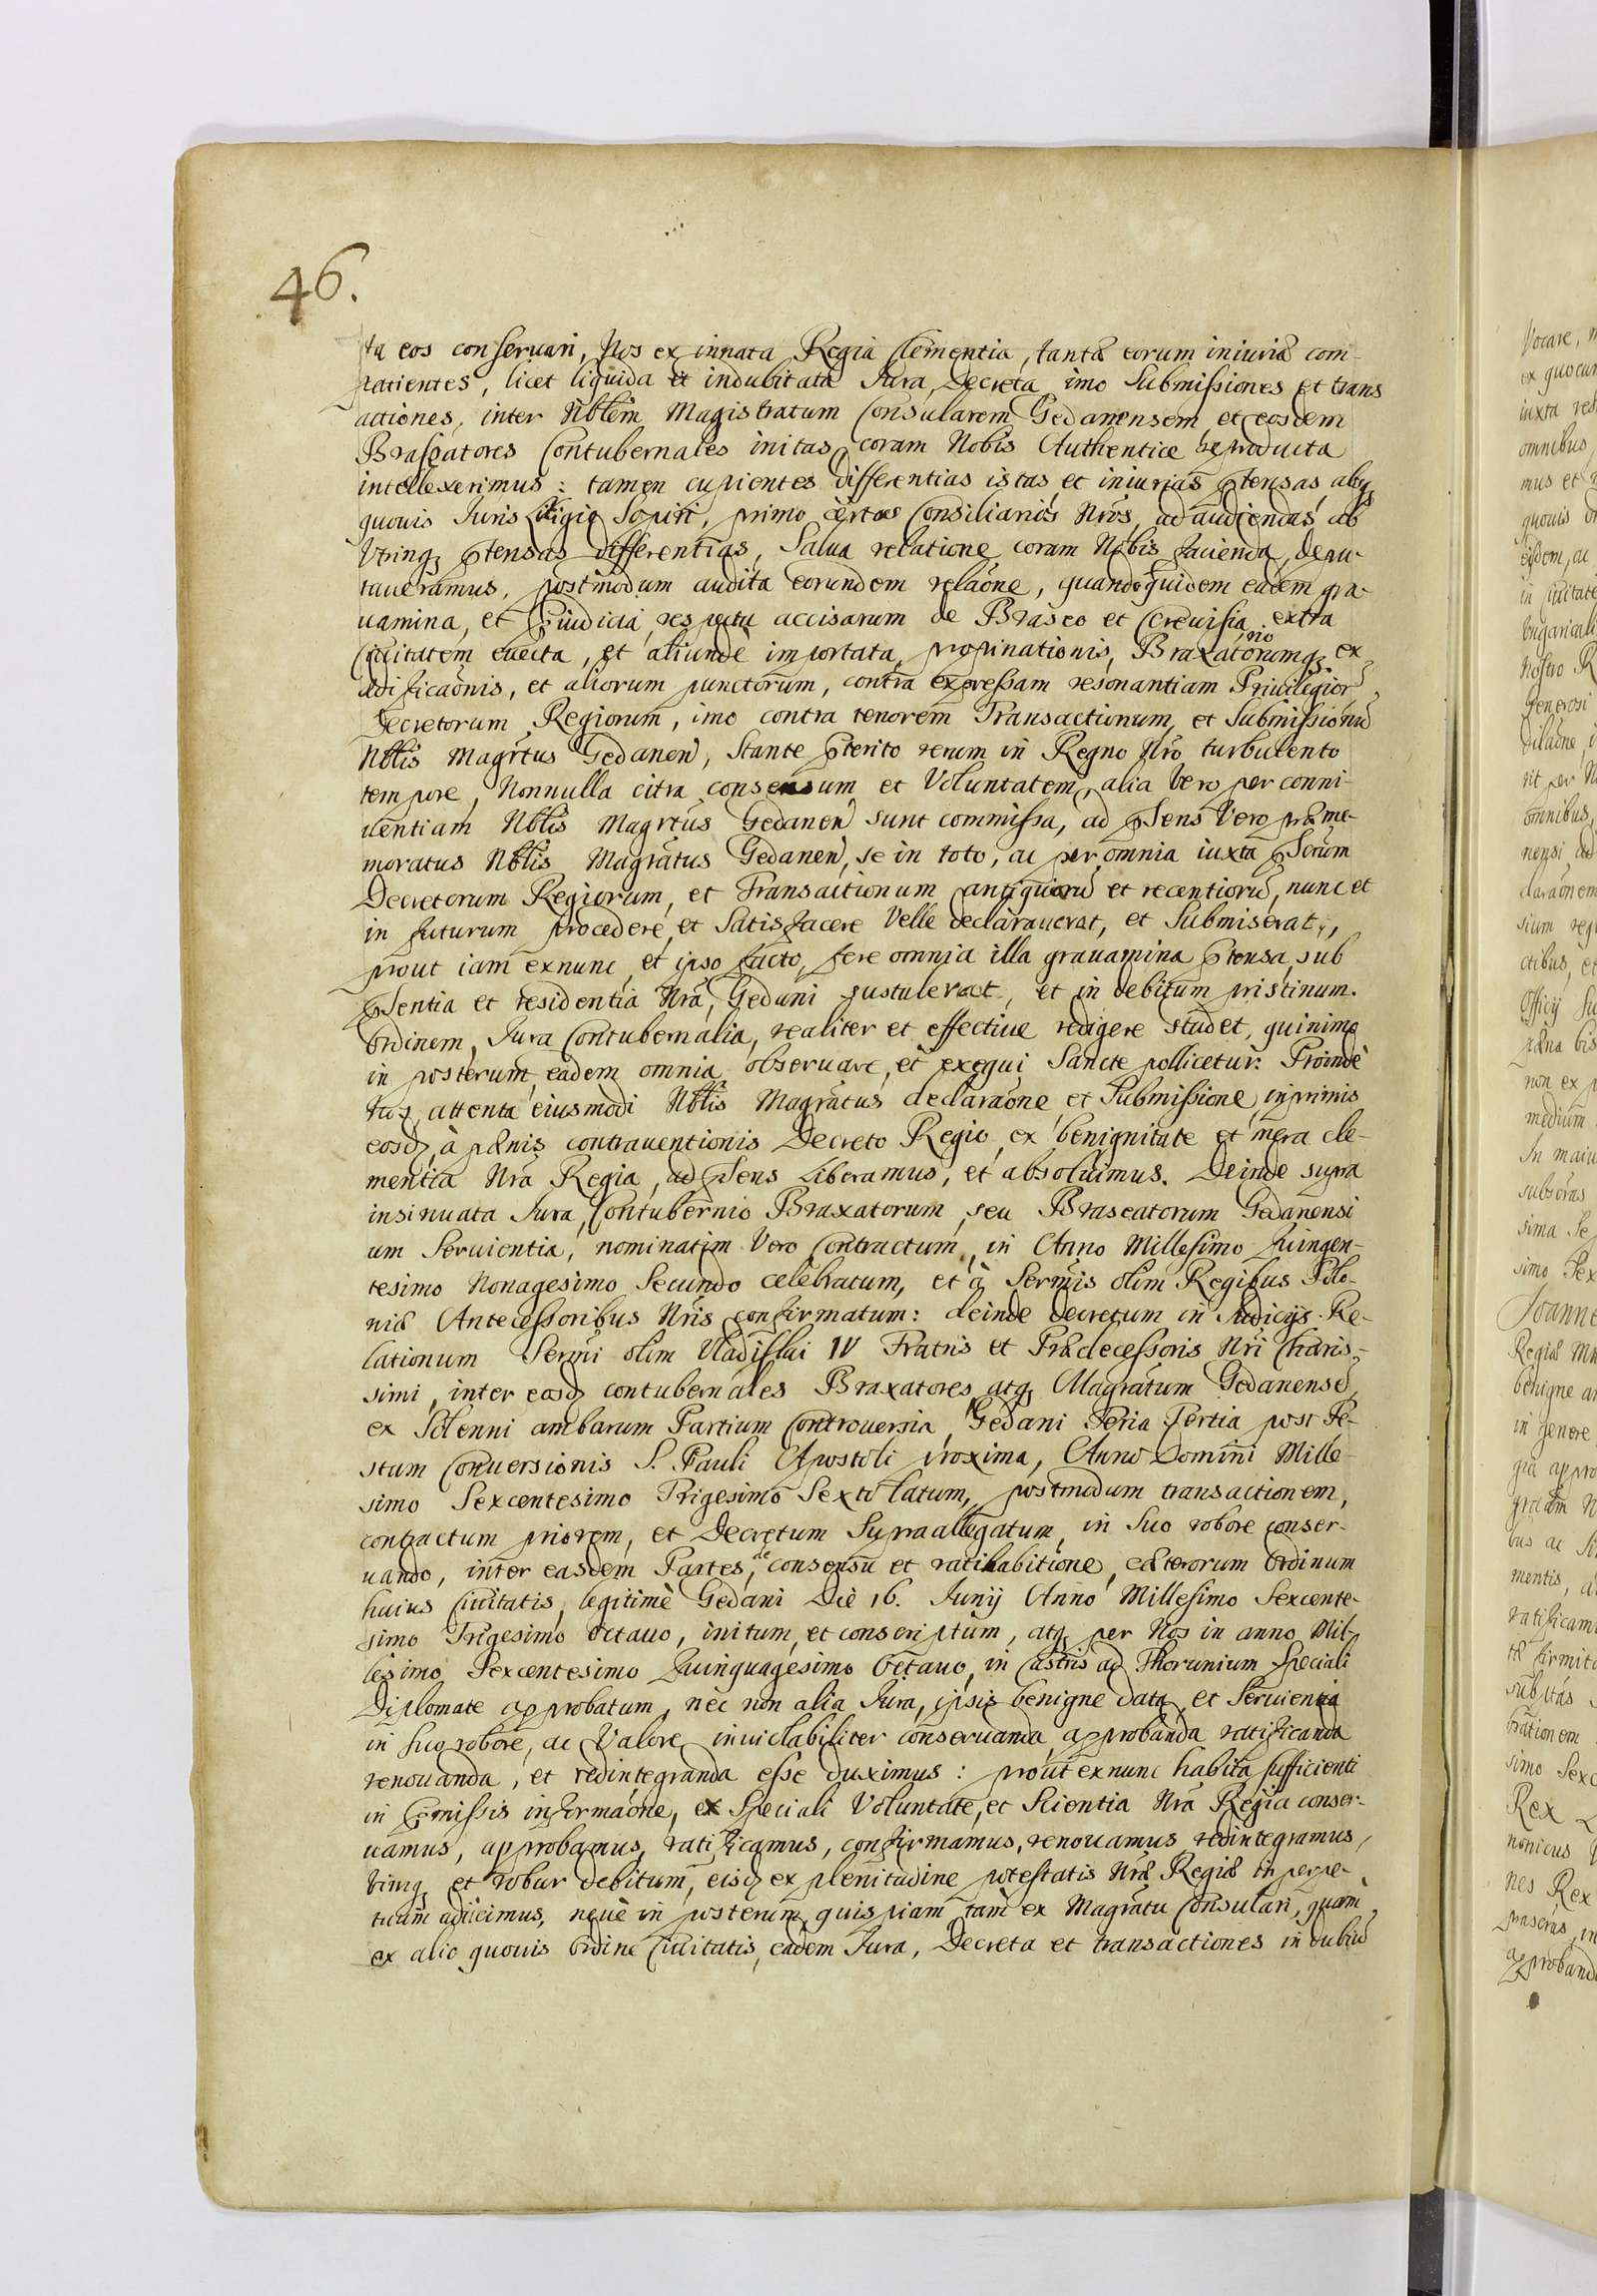 46.
ta eos conseruari, Nos ex innata Regia Clementia, tantæ eorum iniuriæ com-
patientes, licet liquida et indubitata Jura, Decreta, imo Submissiones et trans
actiones, inter Nblem Magistratum Consularem Gedanensem, et eosdem
Braseatores Contubernales initas, coram Nobis Authentice reproducta
intellexerimus: tamen cupientes differentias istas, et iniurias ptensas, absq
quouis Juris litigio Sopiri, primo certos Consiliarios Nros, ad audiendas ab
Vtrinq ptensas differentias, Salua relatione coram Nobis facienda, depu-
taueramus, postmodum audita eorundem relaone, quandoquidem eadem gra-
uamina, et pjudicia, respectu accisarum de Braseo et Creuisia extra
Ciuitatem euecta, et aliunde importata, propinationis, Braxatoriorumq ex
ædificaonis, et aliorum punctorum, contra expressam resonantiam Priuilegior
Decretorum Regiorum, imo contra tenorem Transactionum, et Submissionū
Nblis Magrtus Gedanen, Stante pterito rerum in Regno Nro turbulento
tempore, Nonnulla citra consensum et Voluntatem, alia Vero per conni-
uentiam Nblis Magrtus Gedanen sunt commissa, ad psens Vero præme-
moratus Nblis Magratus Gedanen, se in toto, ac per omnia iuxta pscrum
Decretorum Regiorum, et Transactionum antiquiorū et recentiorū, nunc et
in futurum procedere, et Satisfacere Velle declarauerat, et Submiserat,
prout iam exnunc, et ipso facto, fere omnia illa grauamina ptensa, sub
psentia et residentia Nra, Gedani sustulerat, et in debitum pristinum.
Ordinem, Jura Contubernalia, realiter et effectiue redigere studet, quinimo
in posterum, eadem omnia obseruare, et exequi Sancte pollicetur. Proinde
Nos, attenta eiusmodi Nblis Magratus declaraone, et Submissione, inprimis
eosd, à pænis contrauentionis Decreto Regio, ex benignitate et mera cle-
mentia Nra Regia, ad psens Liberamus, et absoluimus. Deinde supra
insinuata Jura, Contubernio Braxatorum, seu Braseatorum Gedanensi
um Seruientia, nominatim Vero Contractum, in Anno Millesimo Quingen-
tesimo Nonagesimo Secundo celebratum, et à Sermis olim Regibus Polo-
niæ Antecessoribus Nris confirmatum: deinde decretum in Judicijs Re-
lationum Sermi olim Vladislai IV Fratris et Prædecessoris Nri Charis-
simi, inter eosd contubernales Braxatores, atq Magratum Gedanensē,
ex Solenni ambarum Partium Controuersia, Gedani Feria Tertia post Fe-
stum Conuersionis S. Pauli Apostoli proxima, Anno Domini Mille-
simo Sexcentesimo Trigesimo Sexto latum, postmodum transactionem,
contractum priorem, et Decretum Supra allegatum, in Suo robore conser-
uando, inter easdem Partes, de consensu et ratihabitione, cæterorum Ordinum
huius Ciuitatis, legitimè Gedani Die 16. Junij Anno Millesimo Sexcente-
simo Trigesimo Octauo, initum, et conscriptum, atq per Nos in anno Mil-
lesimo Sexcentesimo Quinquagesimo Octauo, in Castris ad Thorunium Speciali
Diplomate approbatum, nec non alia Jura, ipsis benigne data, et Seruientia
in suo robore, ac Valore, inuiolabiliter conseruanda, approbanda ratificanda
renouanda, et redintegranda esse duximus: prout exnunc habita sufficienti
in pmissis informaone, ex Speciali Voluntate, et Scientia Nra Regia conser-
uamus, approbamus, ratificamus, confirmamus, renouamus redintegramus,
Vimq et robur debitum, eisd ex plenitudine potestatis Nræ Regiæ in perpe-
tuum adijcimus, neuè in posterum, quispiam tàm ex Magratu Consulari, quàm
ex alio quouis Ordine Ciuitatis, eadem Jura, Decreta et transactiones in dubiū